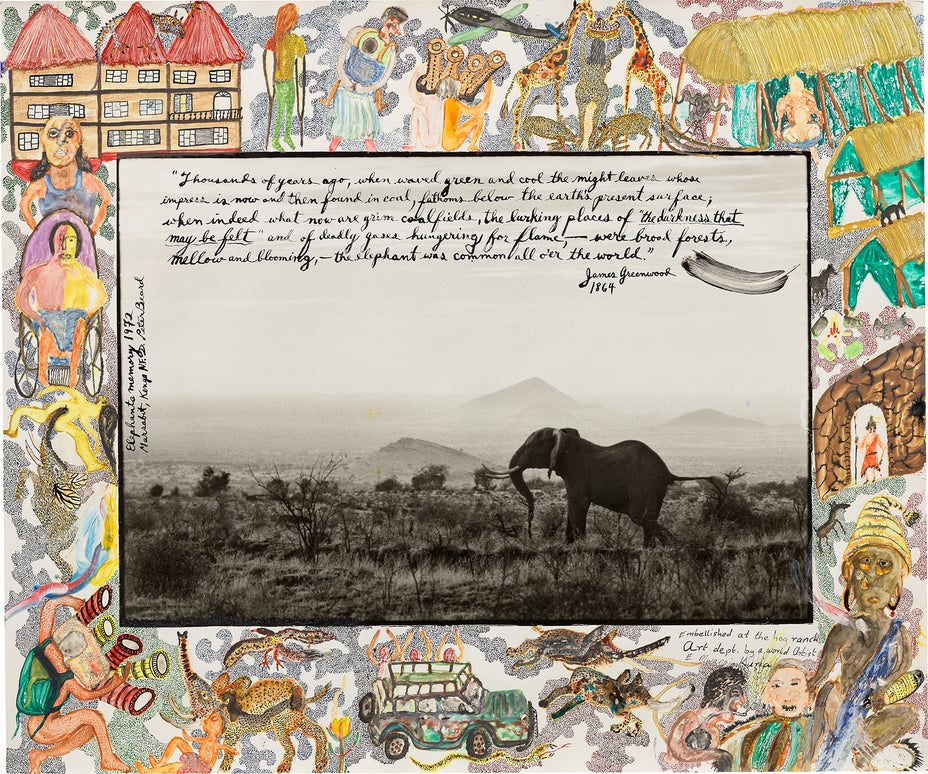 "Thousands of years ago, when waved green and cool the might leaves whose
impress is now and then found in coal, fathoms below the earth's present surface;
when indeed what now are grim coalfields, the lurking places of "the darkness that
may be felt" and of deadly gases hungering for flame, — were broad forests,
mellow and blooming, — the elephant was common all o'er the world."
James Greenwood
1864
Elephants memory 1972
Marsabit, Kenya NFD. Peter Beard
Embellished at the hog ranch
Art dept. by a world Artist
E.